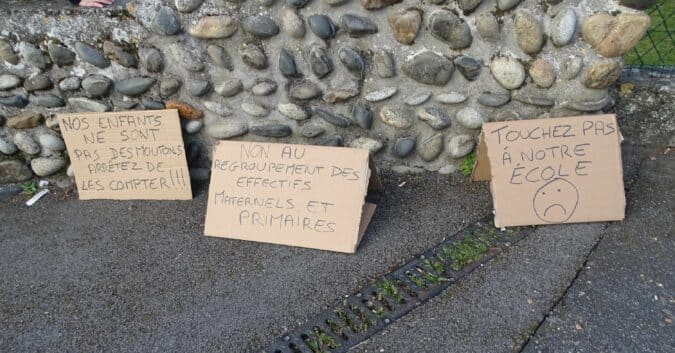 NOS ENFANTS
NE SONT
PAS DES MOUTONS
ARRÊTEZ DE
LES COMPTER !!!
NON AU
REGROUPEMENT DES
EFFECTIFS
MATERNELS ET
PRIMAIRES
TOUCHEZ PAS
À NOTRE
ÉCOLE